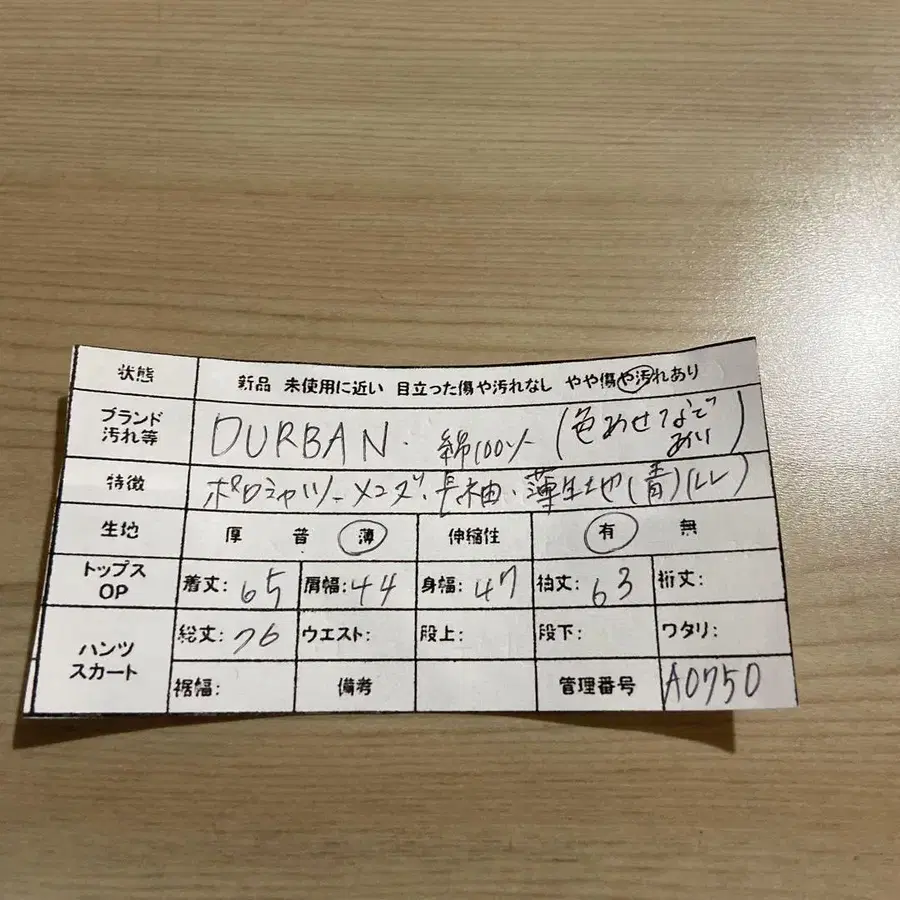 状態 新品 未使用に近い 目立った傷や汚れなし やや傷や汚れあり
ブランド 汚れ等 DURBAN. 綿100% (色あせなで あい)
特徴 ポロシャツ、メンズ、長袖、薄生地(青)(LL)
生地 厚 普 薄 伸縮性 有 無
トップス OP 着丈:65 肩幅:44 身幅:47 袖丈:63 裄丈:
ハンツ スカート 総丈:76 ウエスト: 股上: 股下: ワタリ:
裾幅: 備考 管理番号 A0750